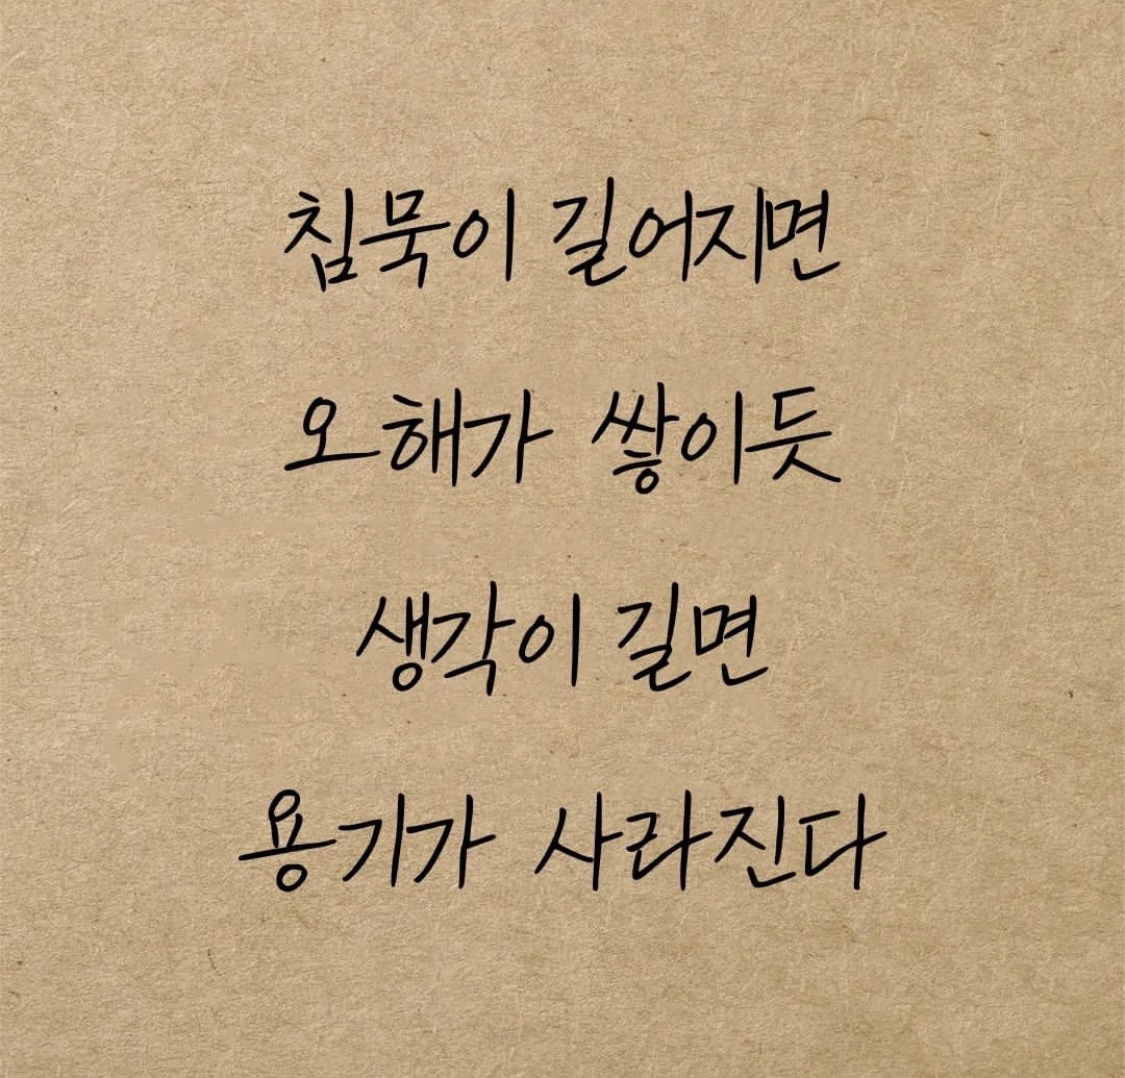 침묵이 길어지면
오해가 쌓이듯
생각이 길면
용기가 사라진다